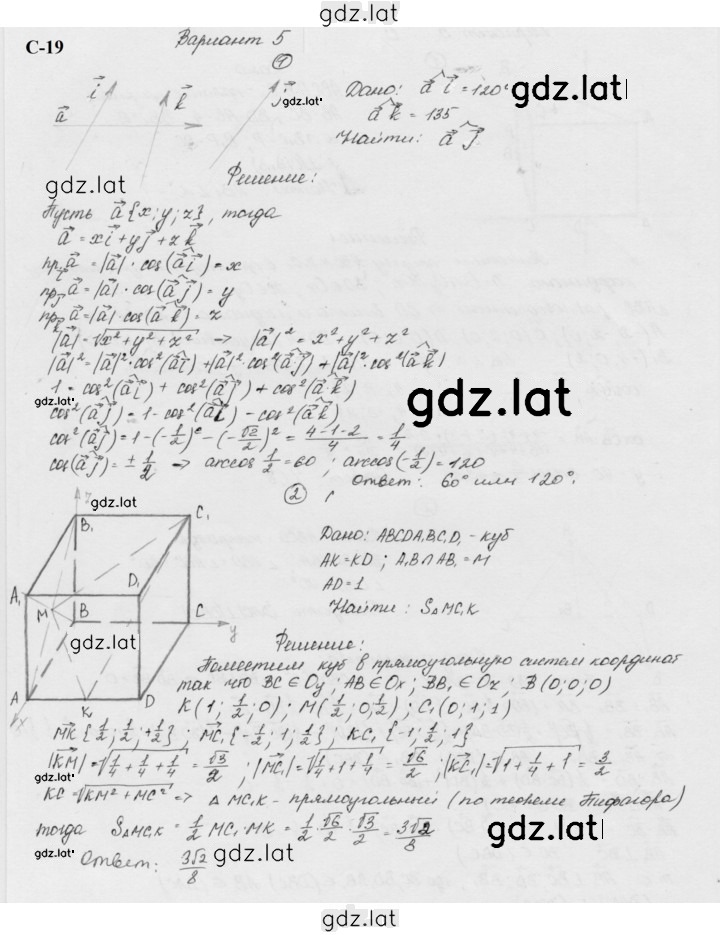 gdz.lat
С-19
Вариант 5
①
Дано: a⃗ i⃗ = 120°
a⃗ k⃗ = 135
Найти: a⃗ j⃗
a⃗ i⃗ k⃗ j⃗
gdz.lat
gdz.lat
gdz.lat
Решение:
Пусть a⃗ {x; y; z}, тогда
a⃗ = xi⃗ + yj⃗ + zk⃗
пр a⃗ = |a⃗| · cos(a⃗ i⃗) = x
пр a⃗ = |a⃗| · cos(a⃗ j⃗) = y
пр a⃗ = |a⃗| · cos(a⃗ k⃗) = z
|a⃗| = √x² + y² + z² → |a⃗|² = x² + y² + z²
|a⃗|² = |a⃗|² · cos²(a⃗i⃗) + |a⃗|² cos²(a⃗ j⃗) + |a⃗|² · cos²(a⃗ k⃗)
1 = cos²(a⃗ i⃗) + cos²(a⃗ j⃗) + cos²(a⃗ k⃗)
gdz.lat
gdz.lat
cos²(a⃗ j⃗) = 1 - cos²(a⃗ i⃗) - cos²(a⃗ k⃗)
cos²(a⃗ j⃗) = 1 - (-1/2)² - (-√2/2)² = (4-1-2)/4 = 1/4
cos(a⃗ j⃗) = ± 1/2 → arccos 1/2 = 60; arccos(-1/2) = 120
Ответ: 60° или 120°.
②
z
gdz.lat
B₁ C₁
A₁ D₁
M B C y
gdz.lat
A K D
x
Дано: ABCDA₁B₁C₁D₁ - куб
AK = KD ; A₁B ∩ AB₁ = M
AD = 1
Найти: S△MC₁K
Решение:
Поместим куб в прямоугольную систем координат
так что BC ∈ Oy ; AB ∈ Ox ; BB₁ ∈ Oz ; B (0; 0; 0)
K (1; 1/2; 0) ; M (1/2; 0; 1/2) ; C₁ (0; 1; 1)
MK {1/2; 1/2; +1/2} ; MC₁ {-1/2; 1; 1/2} ; KC₁ {-1; 1/2; +1}
|KM| = √1/4 + 1/4 + 1/4 = √3/2 ; |MC₁| = √1/4 + 1 + 1/4 = √6/2 ; |KC₁| = √1 + 1/4 + 1 = 3/2
gdz.lat
KC = √KM² + MC² => △ MC₁K - прямоугольный (по теореме Пифагора)
тогда S△MC₁K = 1/2 MC₁ · MK = 1/2 · √6/2 · √3/2 = 3√2/8
gdz.lat
gdz.lat
gdz.lat
Ответ: 3√2/8
gdz.lat